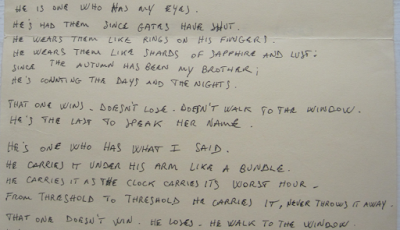 HE IS ONE WHO HAS MY EYES.
HE'S HAD THEM SINCE GATES HAVE SHUT.
HE WEARS THEM LIKE RINGS ON HIS FINGERS.
HE WEARS THEM LIKE SHARDS OF SAPPHIRE AND LUST:
SINCE THE AUTUMN HAS BEEN MY BROTHER;
HE'S COUNTING THE DAYS AND THE NIGHTS.
THAT ONE WINS. DOESN'T LOSE. DOESN'T WALK TO THE WINDOW.
HE'S THE LAST TO SPEAK HER NAME.
HE'S ONE WHO HAS WHAT I SAID.
HE CARRIES IT UNDER HIS ARM LIKE A BUNDLE.
HE CARRIES IT AS THE CLOCK CARRIES ITS WORST HOUR.
FROM THRESHOLD TO THRESHOLD HE CARRIES IT, NEVER THROWS IT AWAY.
THAT ONE DOESN'T WIN. HE LOSES. HE WALK TO THE WINDOW.